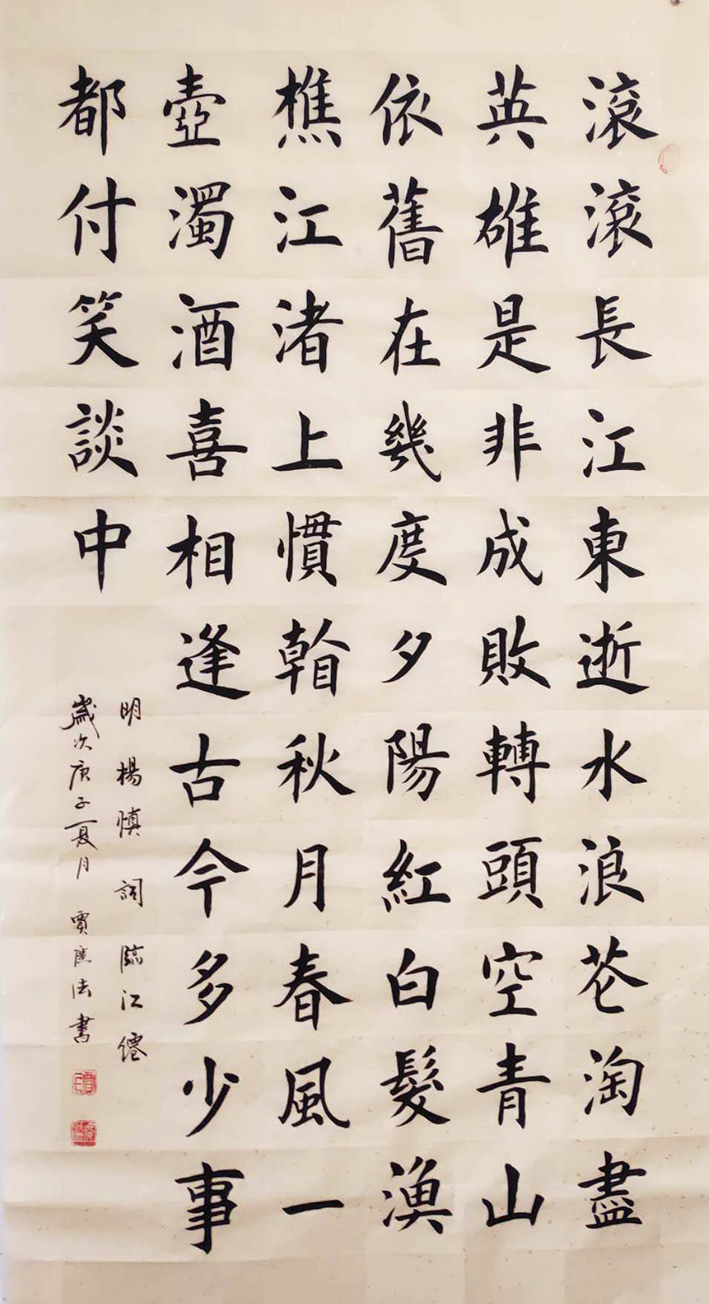 滚滚長江東逝水浪花淘盡
英雄是非成敗轉頭空青山
依舊在幾度夕陽紅白髮漁
樵江渚上慣看秋月春風一
壺濁酒喜相逢古今多少事
都付笑談中
明楊慎詞臨江僊
歲次庚子夏月 賈法書